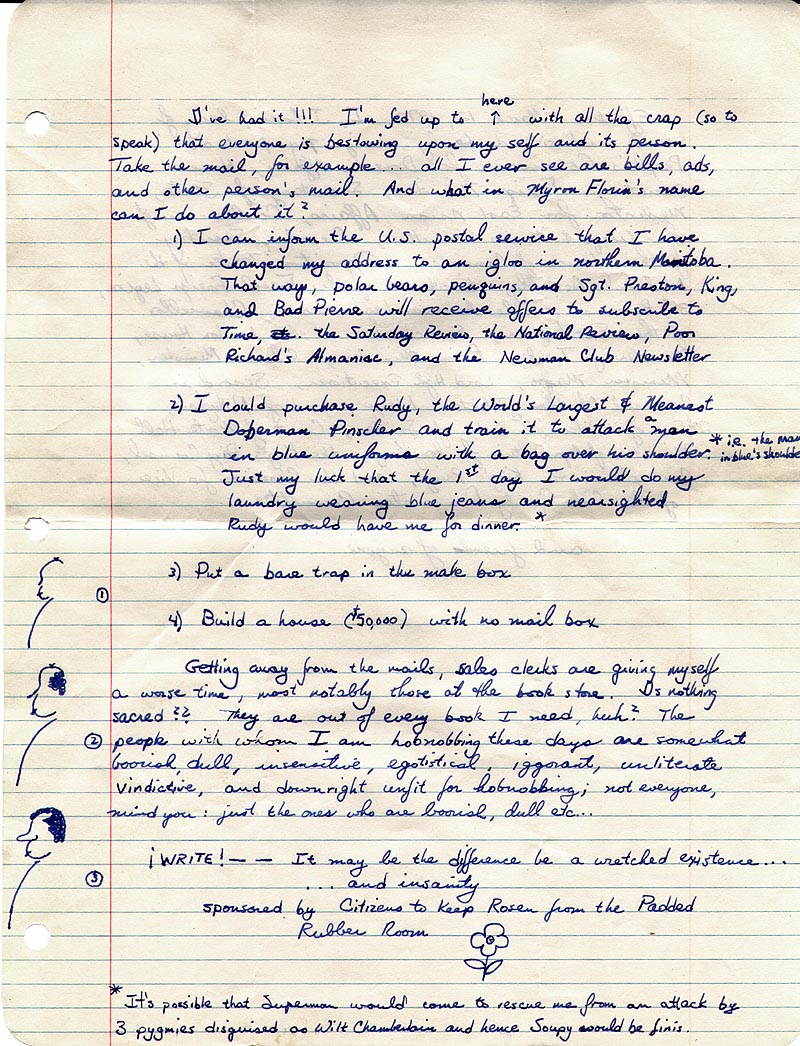 here
I've had it!!! I'm fed up to ↑ with all the crap (so to
speak) that everyone is bestowing upon my self and its person.
Take the mail, for example... all I ever see are bills, ads,
and other person's mail. And what in Myron Florin's name
can I do about it?
1) I can inform the U.S. postal service that I have
changed my address to an igloo in northern Manitoba.
That way, polar bears, penguins, and Sgt. Preston, King,
and Bad Pierre will receive offers to subscribe to
Time, the Saturday Review, the National Review, Poor
Richard's Almaniac, and the Newman Club Newsletter
2) I could purchase Rudy, the World's Largest & Meanest
Doberman Pinscher and train it to attack a man
in blue uniforms with a bag over his shoulder. * i.e. the man
in blue's shoulde
Just my luck that the 1st day I would do my
laundry wearing blue jeans and nearsighted
Rudy would have me for dinner. *
3) Put a bare trap in the male box
①
4) Build a house ($50,000) with no mail box
Getting away from the mails, sales clerks are giving myself
a worse time, most notably those at the book store. Is nothing
sacred?? They are out of every book I need, huh? The
② people with whom I am hobnobbing these days are somewhat
boorish, dull, insensitive, egotistical, iggorant, unliterate
vindictive, and downright unfit for hobnobbing; not everyone,
mind you: just the ones who are boorish, dull etc...
¡WRITE! – – It may be the difference be a wretched existence...
③ ... and insanity
sponsored by Citizens to Keep Rosen from the Padded
Rubber Room
* It's possible that Superman would come to rescue me from an attack by
3 pygmies disguised as Wilt Chamberlain and hence Soupy would be finis.